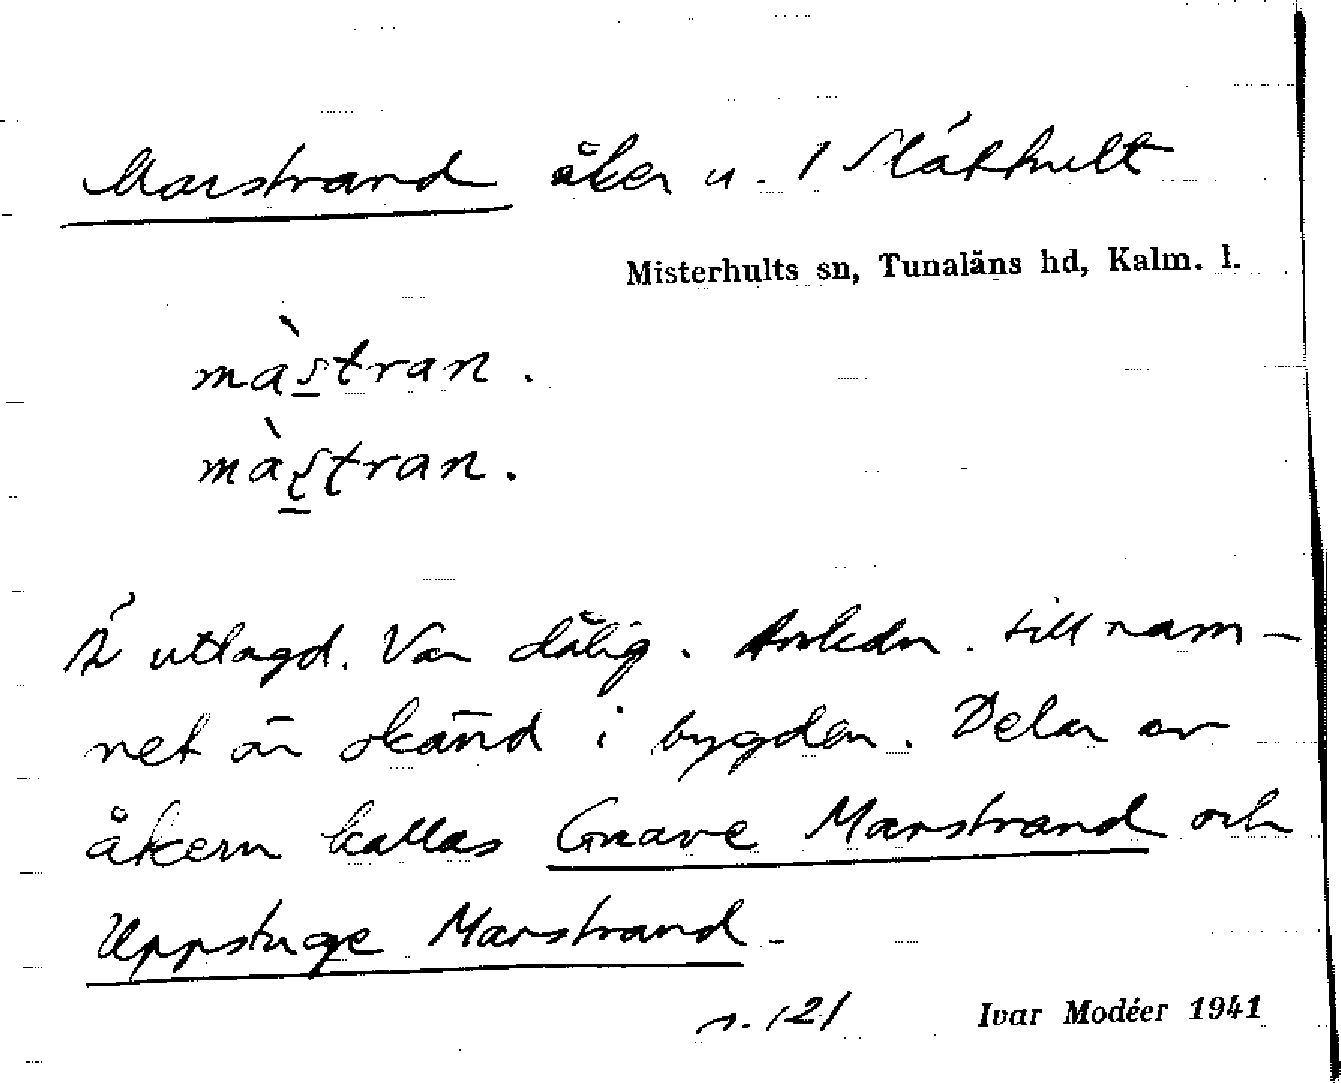 Marstrand åker u. 1 Slåthult
Misterhults sn, Tunaläns hd, Kalm. l.
màs̲tran.
màş̲tran.
Är utlagd. Var dålig. Anledn. till nam-
net är okänd i bygden. Delar av
åkern kallas Grave Marstrand och
Uppstuge Marstrand.
s. 121 Ivar Modéer 1941